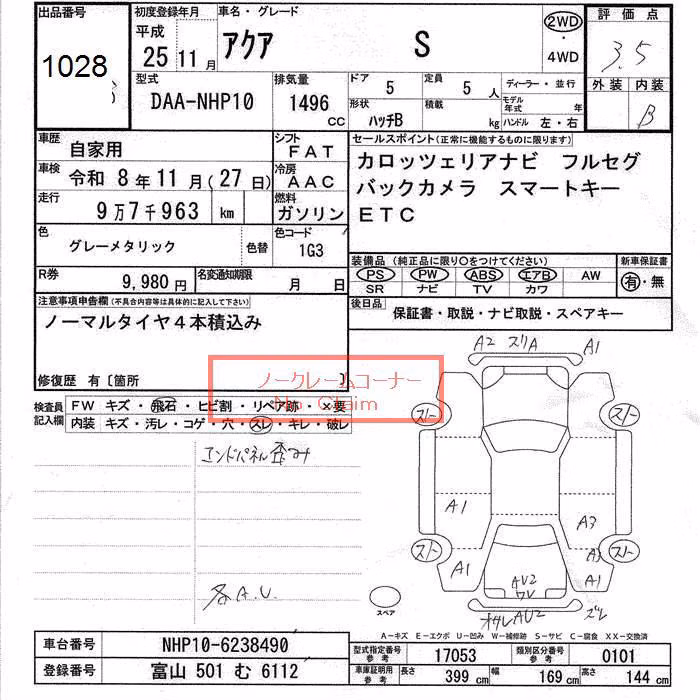 出品番号
1028
初度登録年月
平成
25 11 月
車名・グレード
アクア S
2WD
・
4WD
評価点
3.5
外装 内装
B
型式
DAA-NHP10
排気量
1496
CC
ドア 5
定員 5 人
形状 ハッチB
積載 kg
ディーラー・並行
モデル年式 年
ハンドル 左・右
車歴 自家用
シフト FAT
車検 令和 8 年 11 月 ( 27 日)
冷房 AAC
走行 9 万 7 千 963 km
燃料 ガソリン
色 グレーメタリック 色替
色コード 1G3
R券 9,980 円
名変通知期限 月 日
セールスポイント(正常に機能するものに限ります)
カロッツェリアナビ フルセグ
バックカメラ スマートキー
ETC
装備品 (純正品に限り○をつけてください)
PS PW ABS エアB AW
SR ナビ TV カワ
新車保証書
有・無
後日品 保証書・取説・ナビ取説・スペアキー
注意事項申告欄(不具合内容等は具体的に記入して下さい)
ノーマルタイヤ4本積込み
修復歴 有〔箇所 〕
ノークレームコーナー
No Claim
検査員記入欄
FW キズ・飛石・ヒビ割・リペア跡・×要
内装 キズ・汚レ・コゲ・穴・スレ・キレ・破レ
エンドパネル歪み
各A.U.
A2 スリA A1
スト スト
A1 A3
スト A3 スト
A1 A1
AU2
UV
オサレAU2 ズレ
スペア
A－キズ E－エクボ U－凹み W－補修跡 S－サビ C－腐食 XX－交換済
車台番号 NHP10-6238490
登録番号 富山 501 む 6112
型式指定番号 参考 17053
類別区分番号 参考 0101
車庫証明用 参考 長さ 399 cm 幅 169 cm 高さ 144 cm